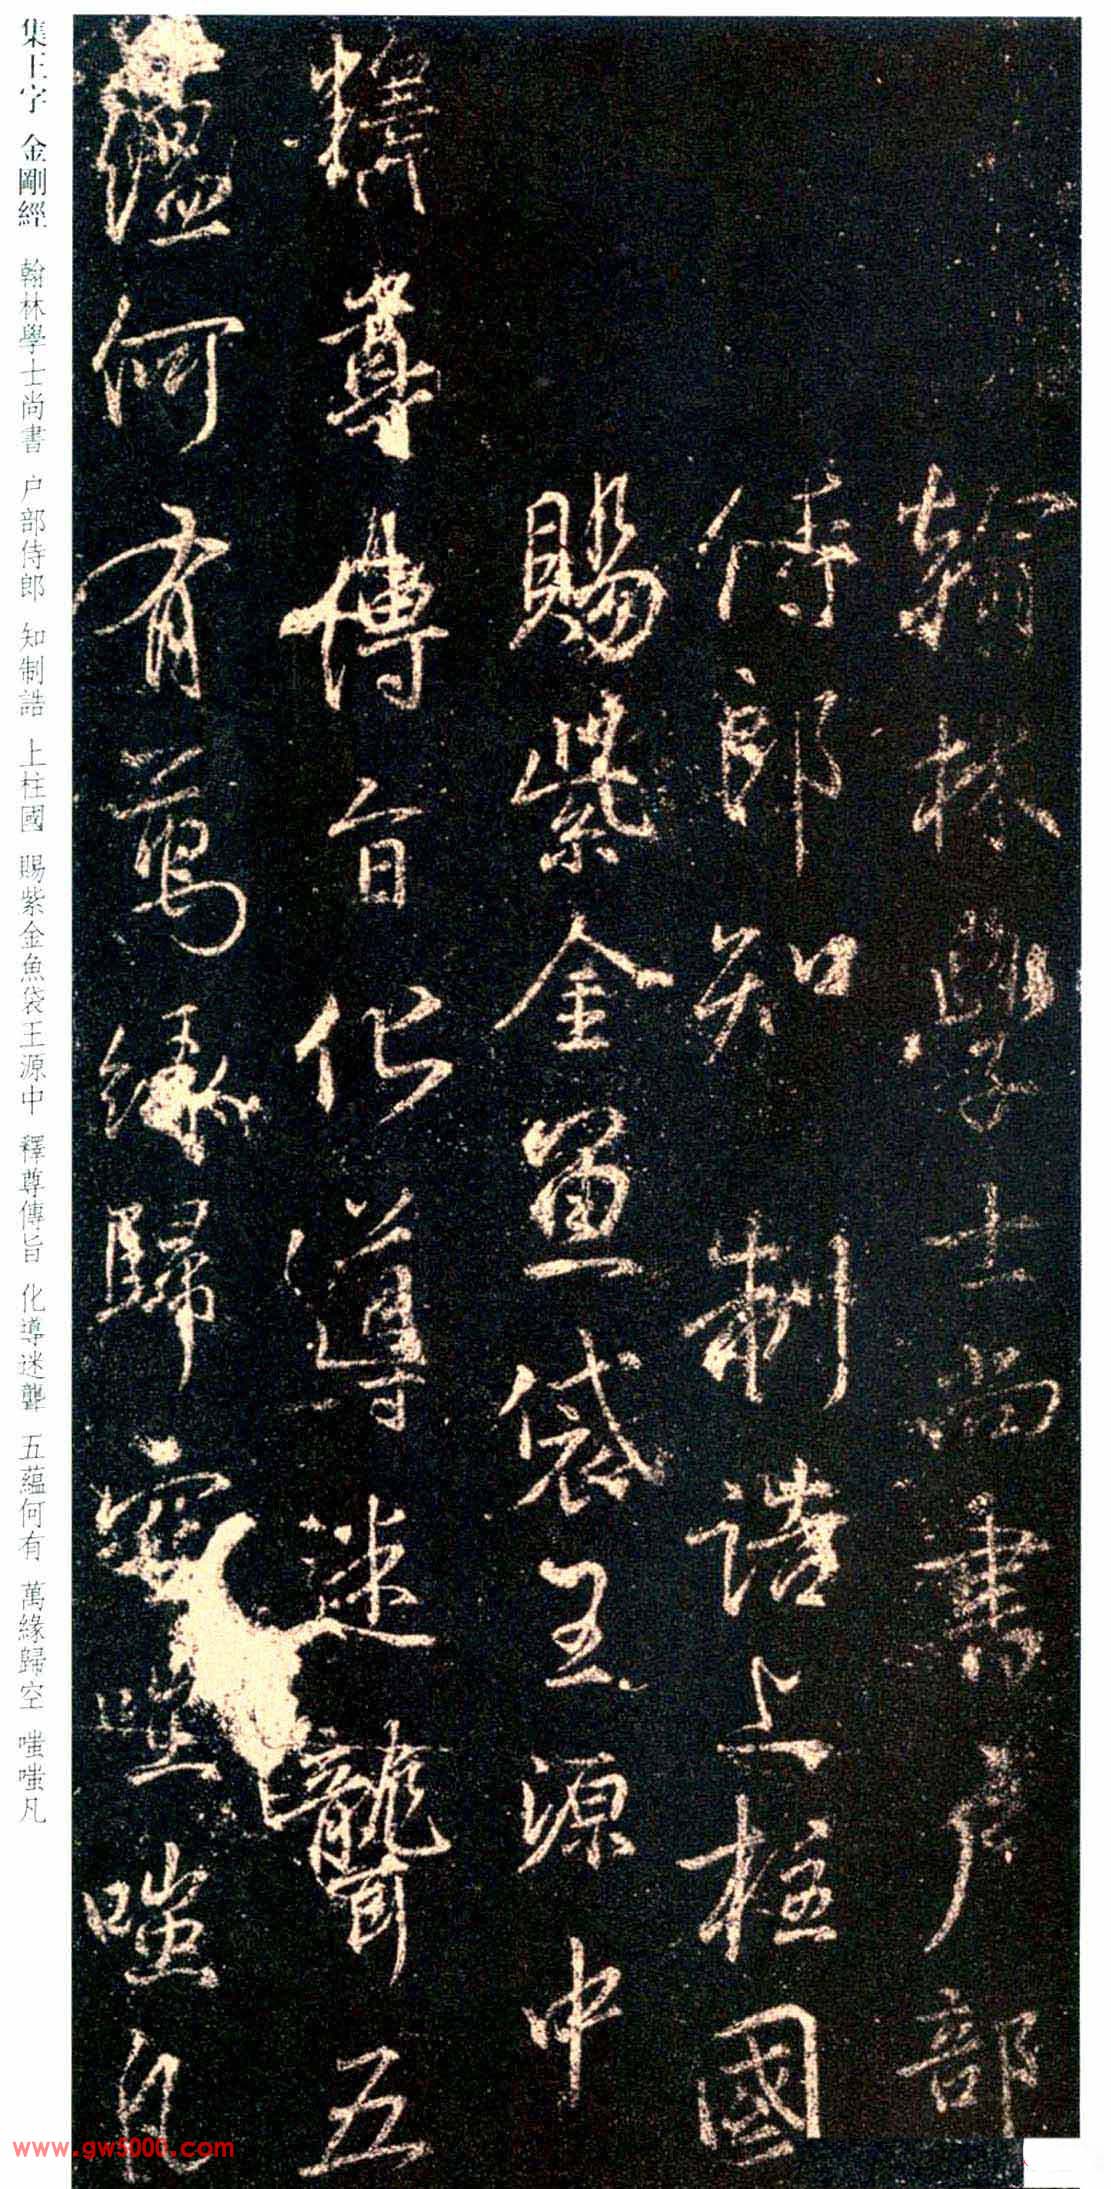 翰林學士尚書户部
侍郎知制誥上柱國
賜紫金魚袋王源中
釋尊傳旨化導迷聾五
蘊何有萬緣歸空嗤嗤凡
集王字 金剛經 翰林學士尚書 户部侍郎 知制誥 上柱國 賜紫金魚袋王源中 釋尊傳旨 化導迷聾 五蘊何有 萬緣歸空 嗤嗤凡
www.gw5000.com